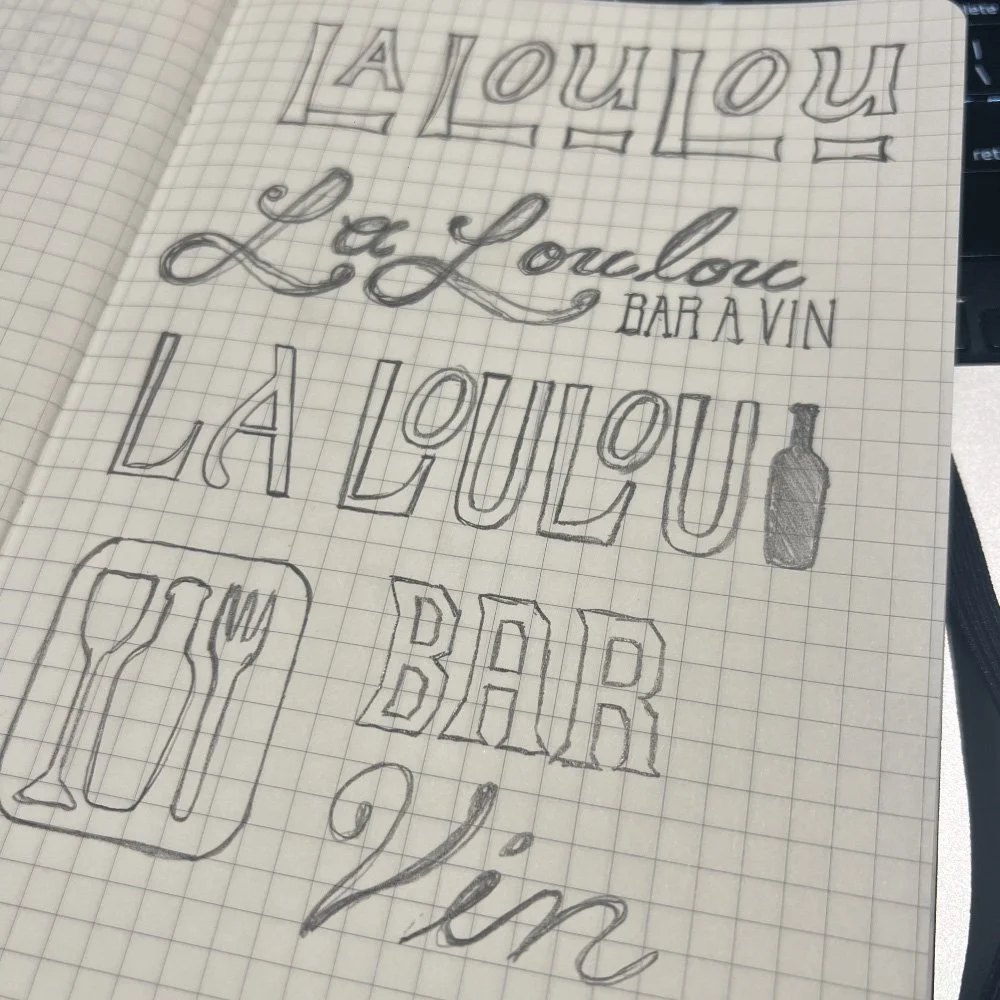 LA LOULOU
La Loulou
BAR A VIN
LA LOULOU
BAR
Vin